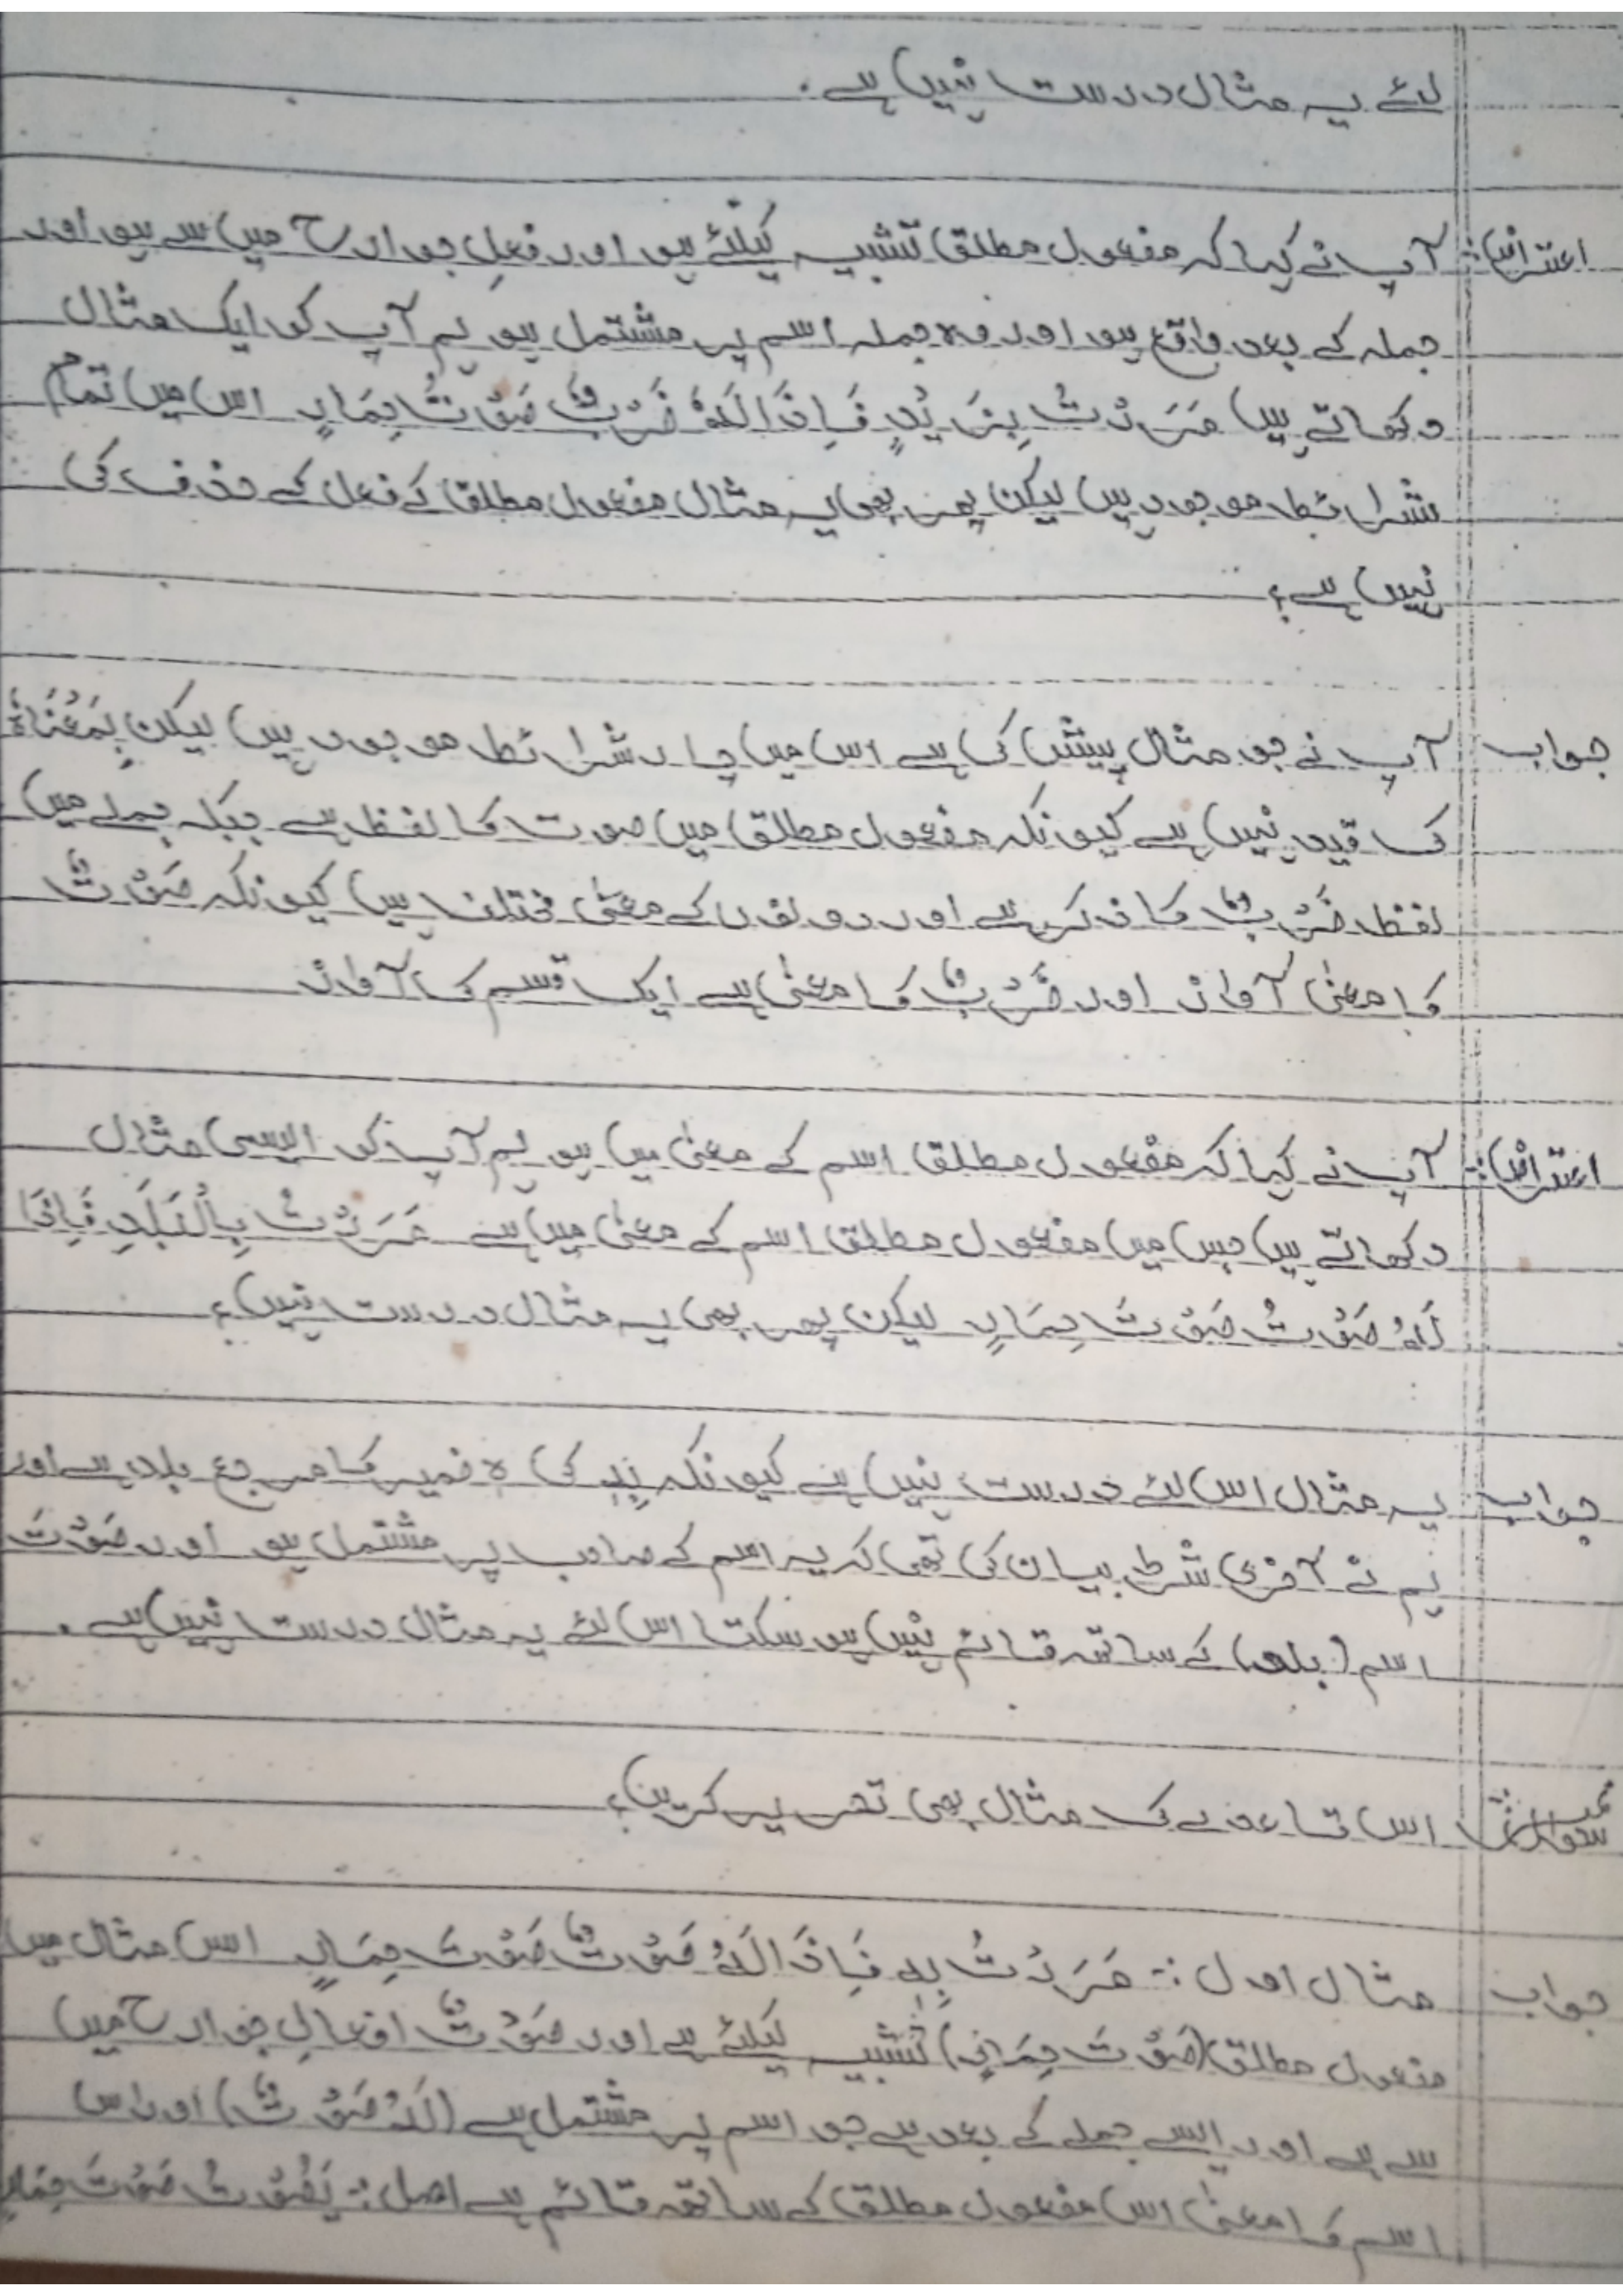 لئے یہ مثال درست نہیں ہے۔
اعتراض:۔ آپ نے کہا کہ مفعول مطلق تشبیہ کیلئے ہو اور فعلِ جوارح میں سے ہو اور
جملہ کے بعد واقع ہو اور وہ جملہ اسم پر مشتمل ہو ہم آپ کو ایک مثال
دکھاتے ہیں مَرَرْتُ بِزَیْدٍ فَاِذَا لَهٗ ضَرْبٌ صَوْتُ حِمَارٍ اس میں تمام
شرائط موجود ہیں لیکن پھر بھی یہ مثال مفعول مطلق کے فعل کے حذف کی
نہیں ہے؟
جواب آپ نے جو مثال پیش کی ہے اس میں چار شرائط موجود ہیں لیکن بِمَعْنَاهُ
کا قید نہیں ہے کیونکہ مفعول مطلق میں صوت کا لفظ ہے جبکہ جملے میں
لفظ ضَرْبٌ کا ذکر ہے اور دونوں کے معنیٰ مختلف ہیں کیونکہ صَوْتٌ
کا معنیٰ آواز اور ضَرْبٌ کا معنیٰ ہے ایک قسم کا آواز
اعتراض:۔ آپ نے کہا کہ مفعول مطلق اسم کے معنیٰ میں ہو ہم آپ کو ایسی مثال
دکھاتے ہیں جس میں مفعول مطلق اسم کے معنیٰ میں ہے مَرَرْتُ بِالْبَلَدِ فَاِذَا
لَهٗ صَوْتُ صَوْتَ حِمَارٍ لیکن پھر بھی یہ مثال درست نہیں؟
جواب یہ مثال اس لئے درست نہیں ہے کیونکہ بِهٖ کی ہ ضمیر کا مرجع بلد ہے اور
ہم نے آخری شرط بیان کی تھی کہ یہ اسم کے صاحب پر مشتمل ہو اور صَوْتَ
اسم (بلد) کے ساتھ قائم نہیں ہو سکتا اس لئے یہ مثال درست نہیں ہے۔
اس قاعدے کا مثال بھی تحریر کریں؟
جواب مثال اول :۔ مَرَرْتُ بِهٖ فَاِذَا لَهٗ صَوْتٌ صَوْتَ حِمَارٍ اس مثال میں
مفعول مطلق (صَوْتَ حِمَارٍ) تشبیہ کیلئے ہے اور صَوْتٌ افعالِ جوارح میں
سے ہے اور ایسے جملے کے بعد ہے جو اسم پر مشتمل ہے (لَهٗ صَوْتٌ) اور اس
اسم کا معنیٰ اس مفعول مطلق کے ساتھ قائم ہے اصل:۔ یَصُوْتُ صَوْتَ حِمَارٍ